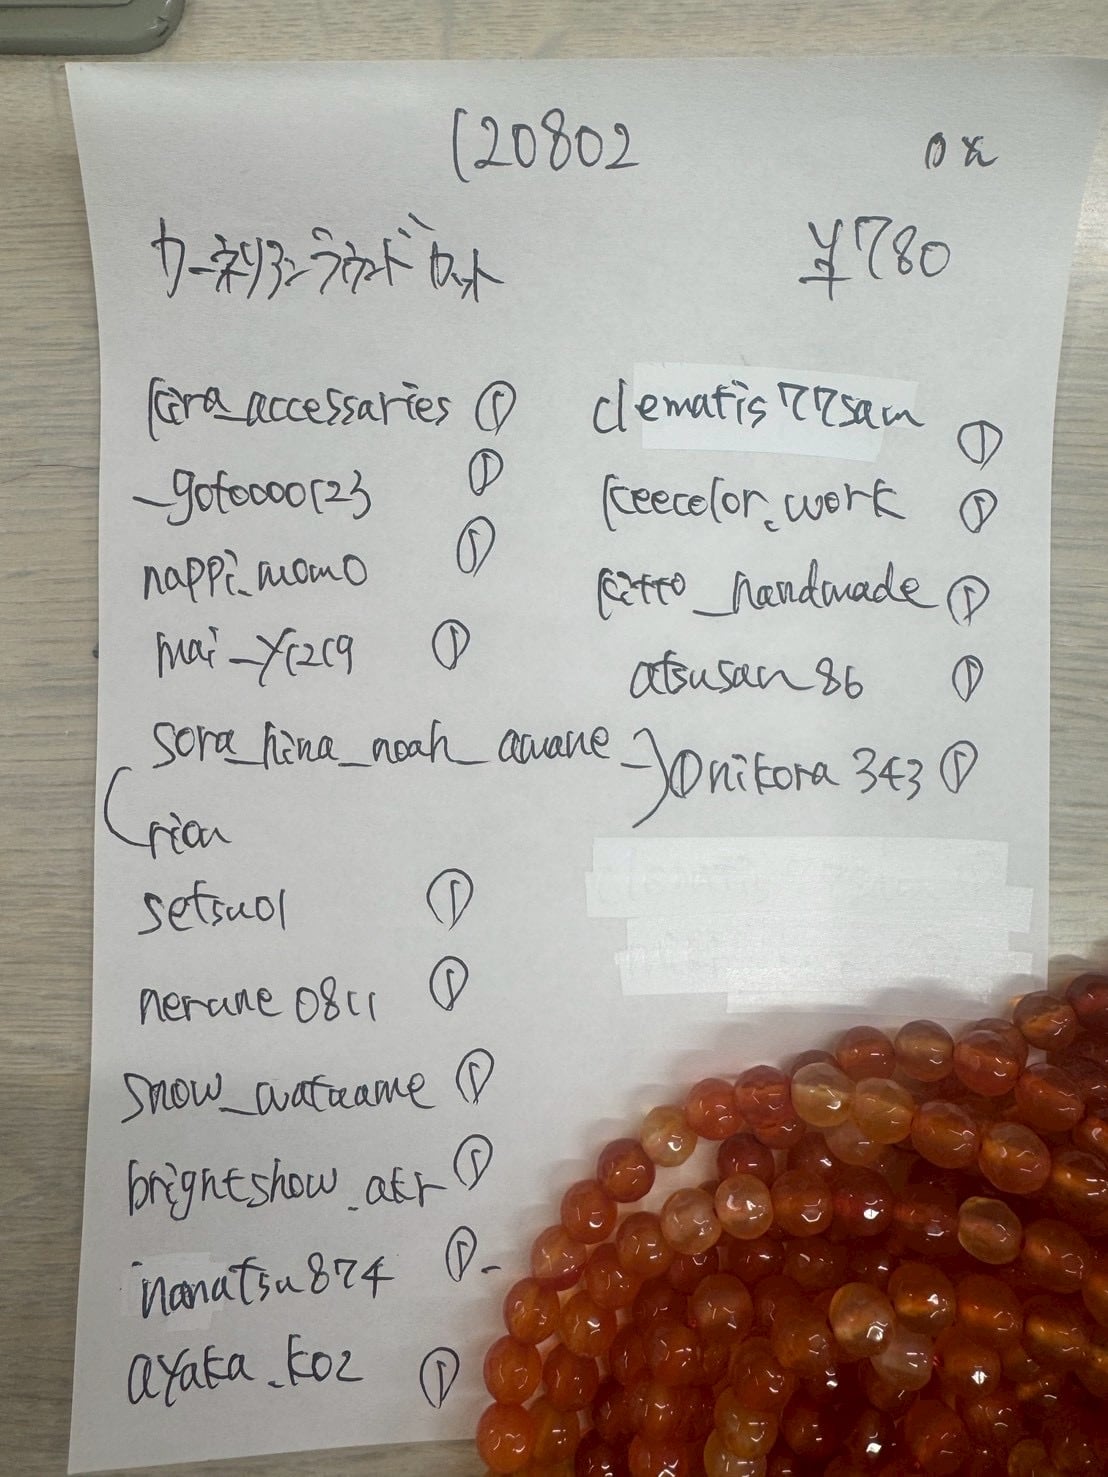 120802
カーネリアンラウンドカット
¥780
kira_accessaries ①
_gotoooo123 ①
nappi.momo ①
mai_y1219 ①
sora_hina_noah_amane_
rion
①
setsu01 ①
nerune0811 ①
snow_watauame ①
brightshow.atr ①
nanatsu874 ①
ayaka.k02 ①
clematis77sam ①
keecolor.work ①
kitto_handmade ①
atsusan86 ①
nikora343 ①